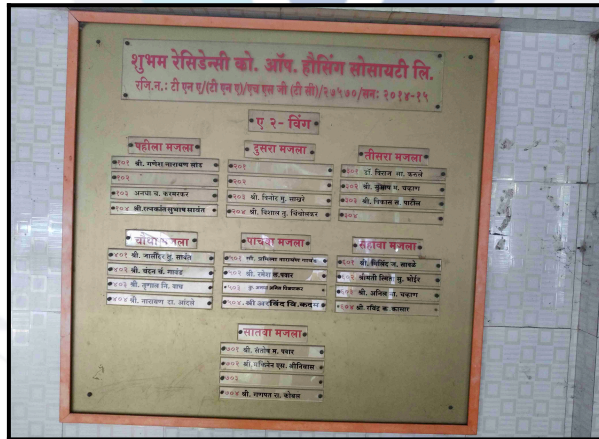 शुभम रेसिडेन्सी को. ऑप. हौसिंग सोसायटी लि.
रजि.न.: टी एन ए/(टी एन ए)/एच एस जी (टी सी)/२७५७०/सन: २०१४-१५
ए २- विंग
पहीला मजला
१०१ श्री. गणेश नारायण लाड
१०२
१०३ अनघा च. करमरकर
१०४ श्री.रत्नकांत सुभाष सावंत
दुसरा मजला
२०१
२०२
२०३ श्री. विनोद गु. साखरे
२०४ श्री. विशाल तु. चिंचोलकर
तीसरा मजला
३०१ डॉ. विराज भा. करुले
३०२ श्री. सुभाष म. चव्हाण
३०३ श्री. विकास स. पाटील
३०४
चौथा मजला
४०१ श्री. जालींदर तु. सावंत
४०२ श्री. चंदन चं. गावंड
४०३ श्री. तृणाल नि. वाघ
४०४ श्री. नारायण दा. आंदले
पाचवा मजला
५०१ सौ. प्रमिला नारायण
५०२ श्री. रमेश ल.पवार
५०३ कु.
५०४ श्री.अरविंद वि.कदम
सहावा मजला
६०१ श्री. मिलिंद ज. साबळे
६०२ श्रीमती स्मिता सु. भोईर
६०३ श्री. अनिल चव्हाण
६०४ श्री. रविंद्र क. कासार
सातवा मजला
७०१ श्री. संतोष म. पवार
७०२ श्री. एस. श्रीनिवास
७०३
७०४ श्री. गणपत रा. कोबल